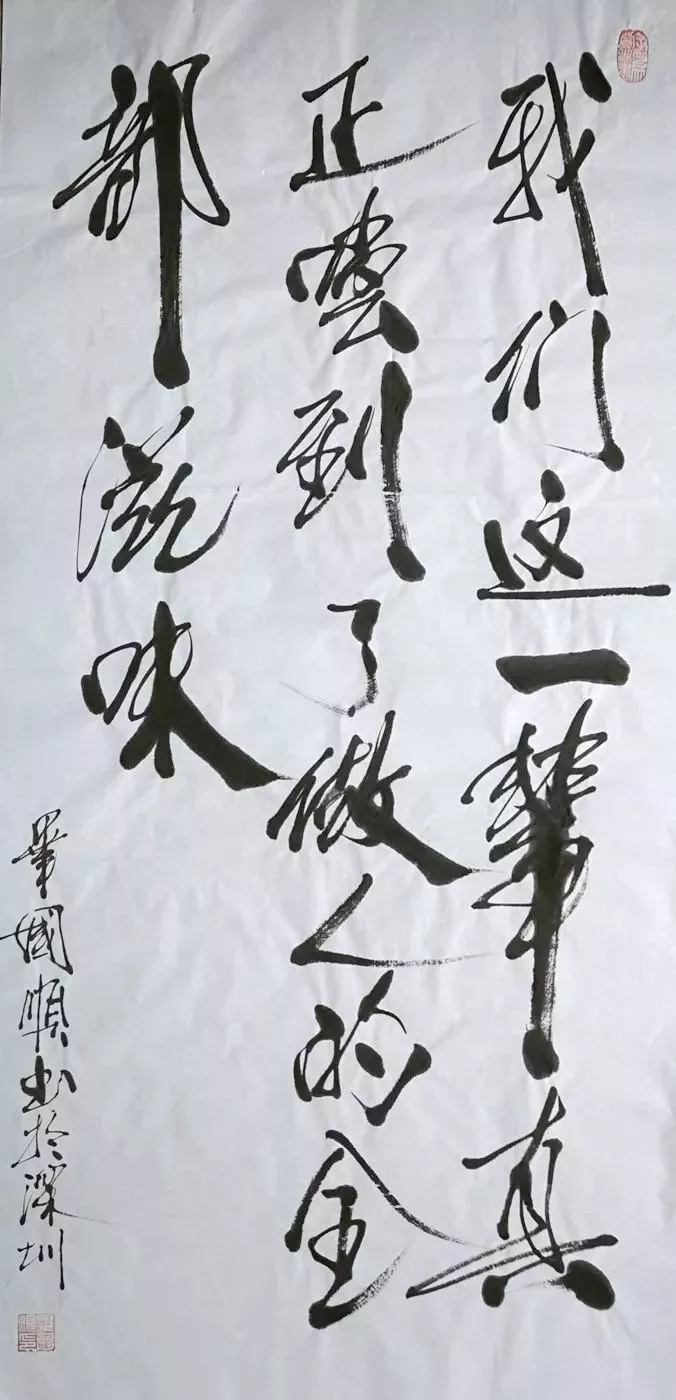 我们这一輩真
正尝到了做人的全
部滋味
畢國順书於深圳